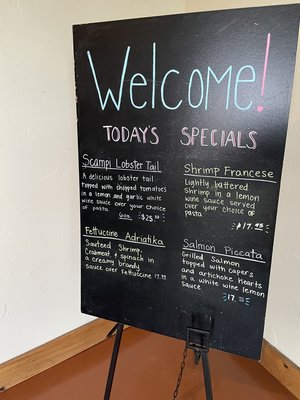 Welcome!
TODAY'S SPECIALS
Scampi Lobster Tail
A delicious lobster tail
topped with chopped tomatoes
in a lemon and garlic white
wine sauce over your choice
of pasta
$25
Fettuccine Adriatika
Sauteed Shrimp,
Crabmeat & spinach in
a creamy brandy
sauce over Fettuccine 17.95
Shrimp Francese
Lightly battered
shrimp in a lemon
wine sauce served
over your choice of
pasta
$17.95
Salmon Piccata
Grilled Salmon
topped with capers
and artichoke hearts
in a white wine lemon
Sauce
17.95